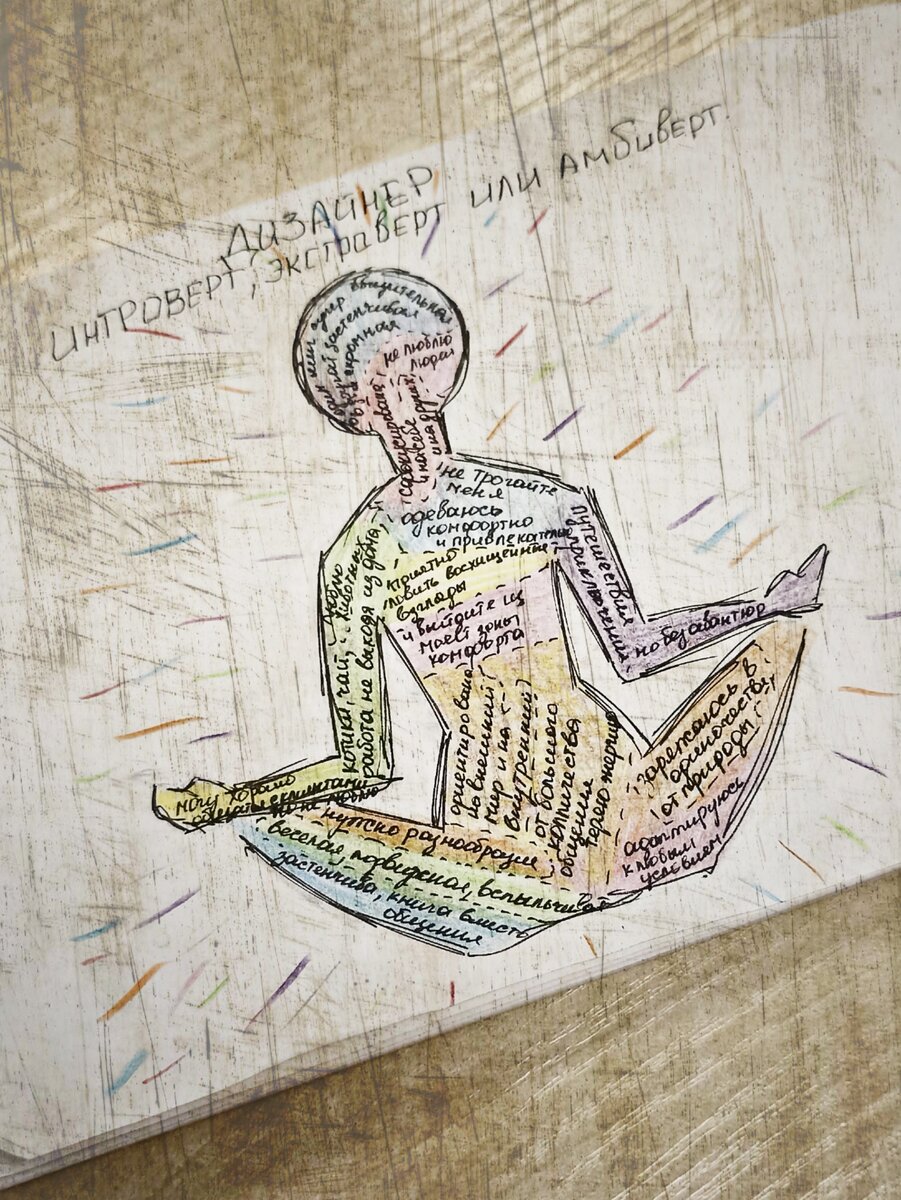 ДИЗАЙНЕР
ИНТРОВЕРТ, ЭКСТРАВЕРТ ИЛИ АМБИВЕРТ.
застенчивая
скромная
не люблю
людей
на себе
не трогайте
меня
одеваюсь
комфортно
и привлекательно
приятно
ловить восхищенные
взгляды
и выйдите из
моей зоны
комфорта
люблю
животных
котики, чай,
работа не выходя из дома,
путешествия
приключения
но без авантюр
могу хорошо
общаться с клиентами
но не люблю
ориентирована
на внешний
мир и на
внутренний
от большого
количества
общения
теряю энергию
заряжаюсь в
одиночестве,
от природы.
адаптируюсь
к любым
условиям
нужно разнообразие
веселая подвижная, вспыльчивая
застенчива, книга вместо
общения